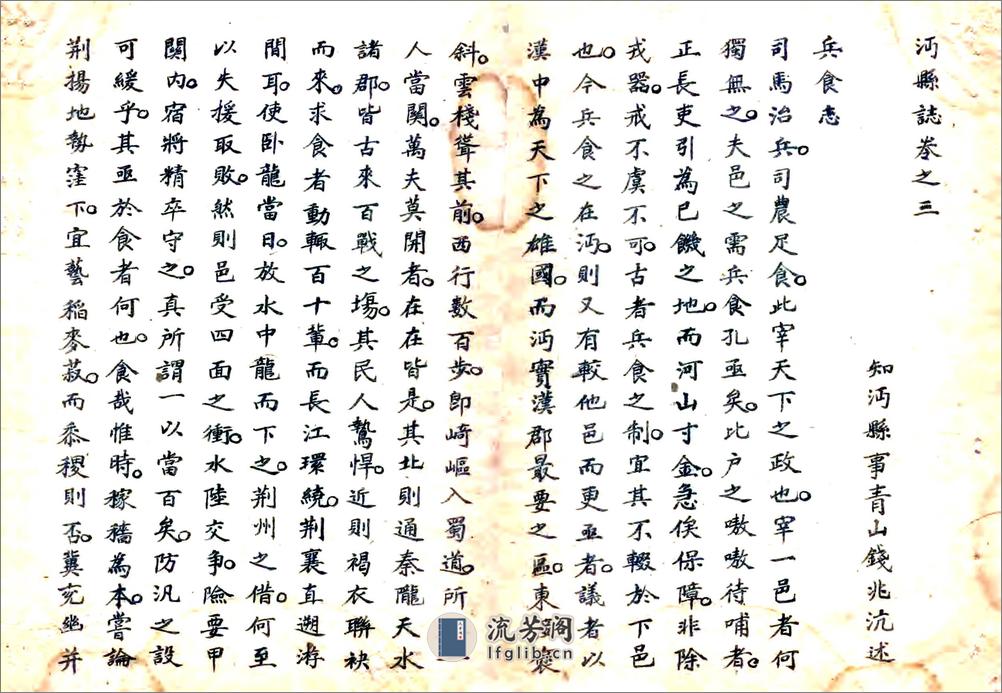 沔縣誌卷之三
知沔縣事青山錢兆沆述
兵食志
司馬治兵。司農足食。此宰天下之政也。宰一邑者何
獨無之。夫邑之需兵食孔亟矣。比户之嗷嗷待哺者。
正長吏引為已饑之地。而河山寸金。急俟保障。非除
戎器。戒不虞不可。古者兵食之制。宜其不輟於下邑
也。今兵食之在沔。則又有較他邑而更亟者。議者以
漢中為天下之雄國。而沔實漢郡最要之區。東
斜。雲棧聳其前。西行数百步。即崎嶇入蜀道。所
人當関。萬夫莫開者。在在皆是。其北則通秦隴天水
諸郡。皆古來百戰之塲。其民人驁悍。近則褐衣聯袂
而來。求食者動輒百十輩。而長江環繞。荆襄直遡游
間耳。使卧龍當日。放水中龍而下之。荆州之借。何至
以失援取敗。然則邑受四面之衝。水陸交争。險要甲
関内。宿將精卒守之。真所謂一以當百矣。防汛之設
可緩乎。其亟於食者何也。食哉惟時。稼穡為本。嘗論
荆揚地勢窪下。宜藝稻麥菽。而黍稷則否。冀兖幽并
流芳阁
lfglib.cn